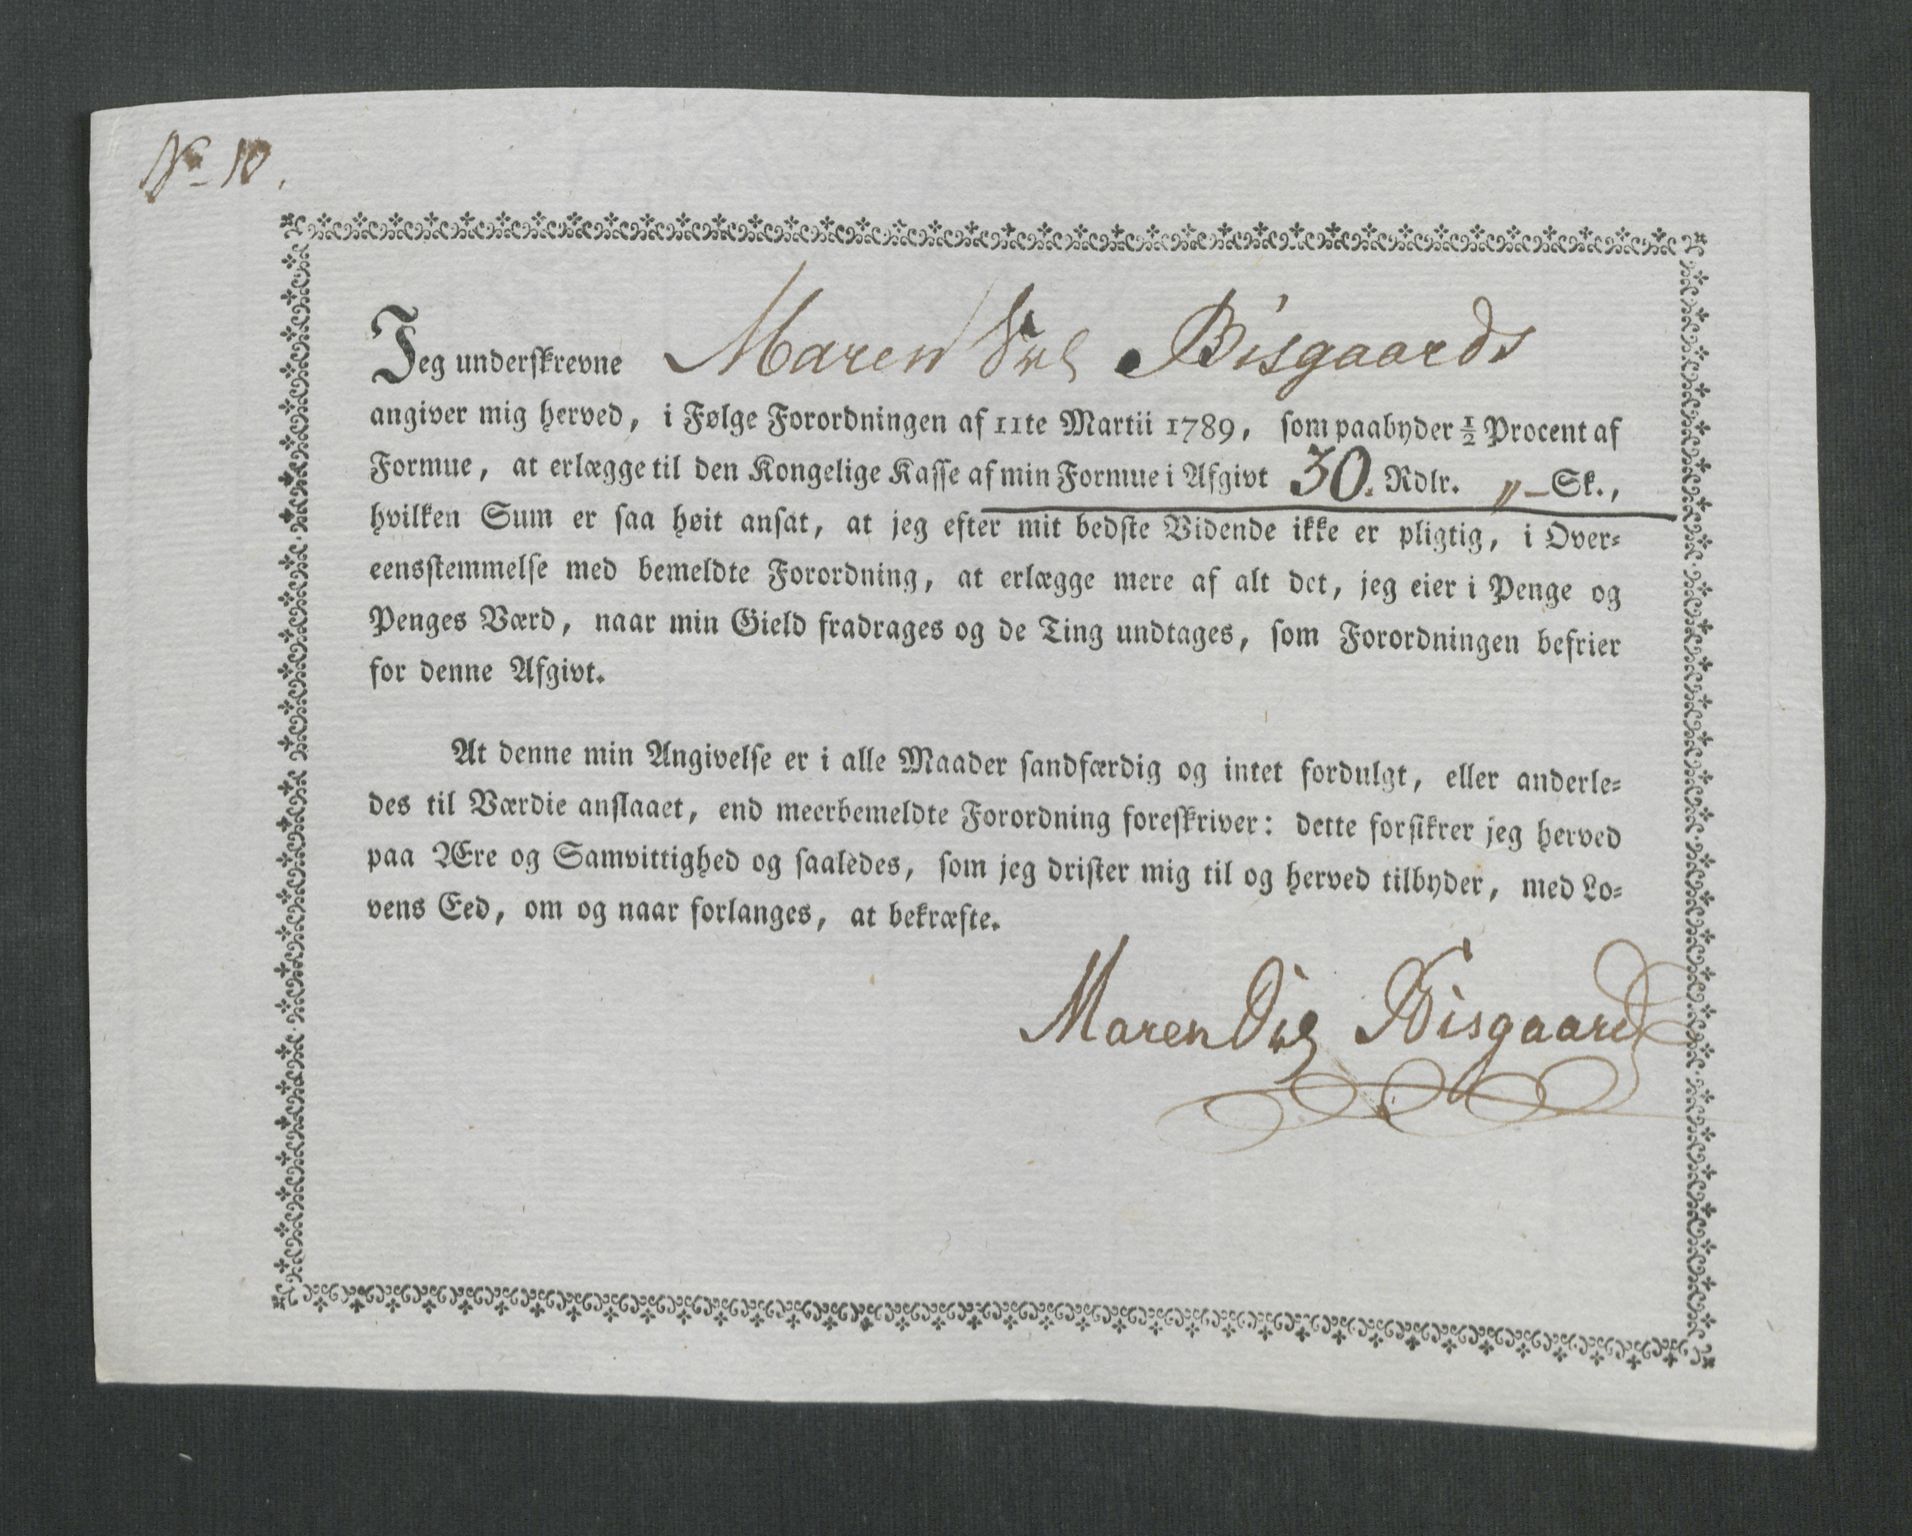 No 10.
Jeg underskrevne Maren Bisgaards
angiver mig herved, i Følge Forordningen af 11te Martii 1789, som paabyder ½ Procent af
Formue, at erlægge til den Kongelige Kasse af min Formue i Afgivt 30. Rdlr. „ – Sk.,
hvilken Sum er saa høit ansat, at jeg efter mit bedste Vidende ikke er pligtig, i Over=
eensstemmelse med bemeldte Forordning, at erlægge mere af alt det, jeg eier i Penge og
Penges Værd, naar min Gield fradrages og de Ting undtages, som Forordningen befrier
for denne Afgivt.
At denne min Angivelse er i alle Maader sandfærdig og intet fordulgt, eller anderle=
des til Værdie anslaaet, end meerbemeldte Forordning foreskriver: dette forsikrer jeg herved
paa Ære og Samvittighed og saaledes, som jeg drister mig til og herved tilbyder, med Lo=
vens Eed, om og naar forlanges, at bekræfte.
Maren Bisgaard